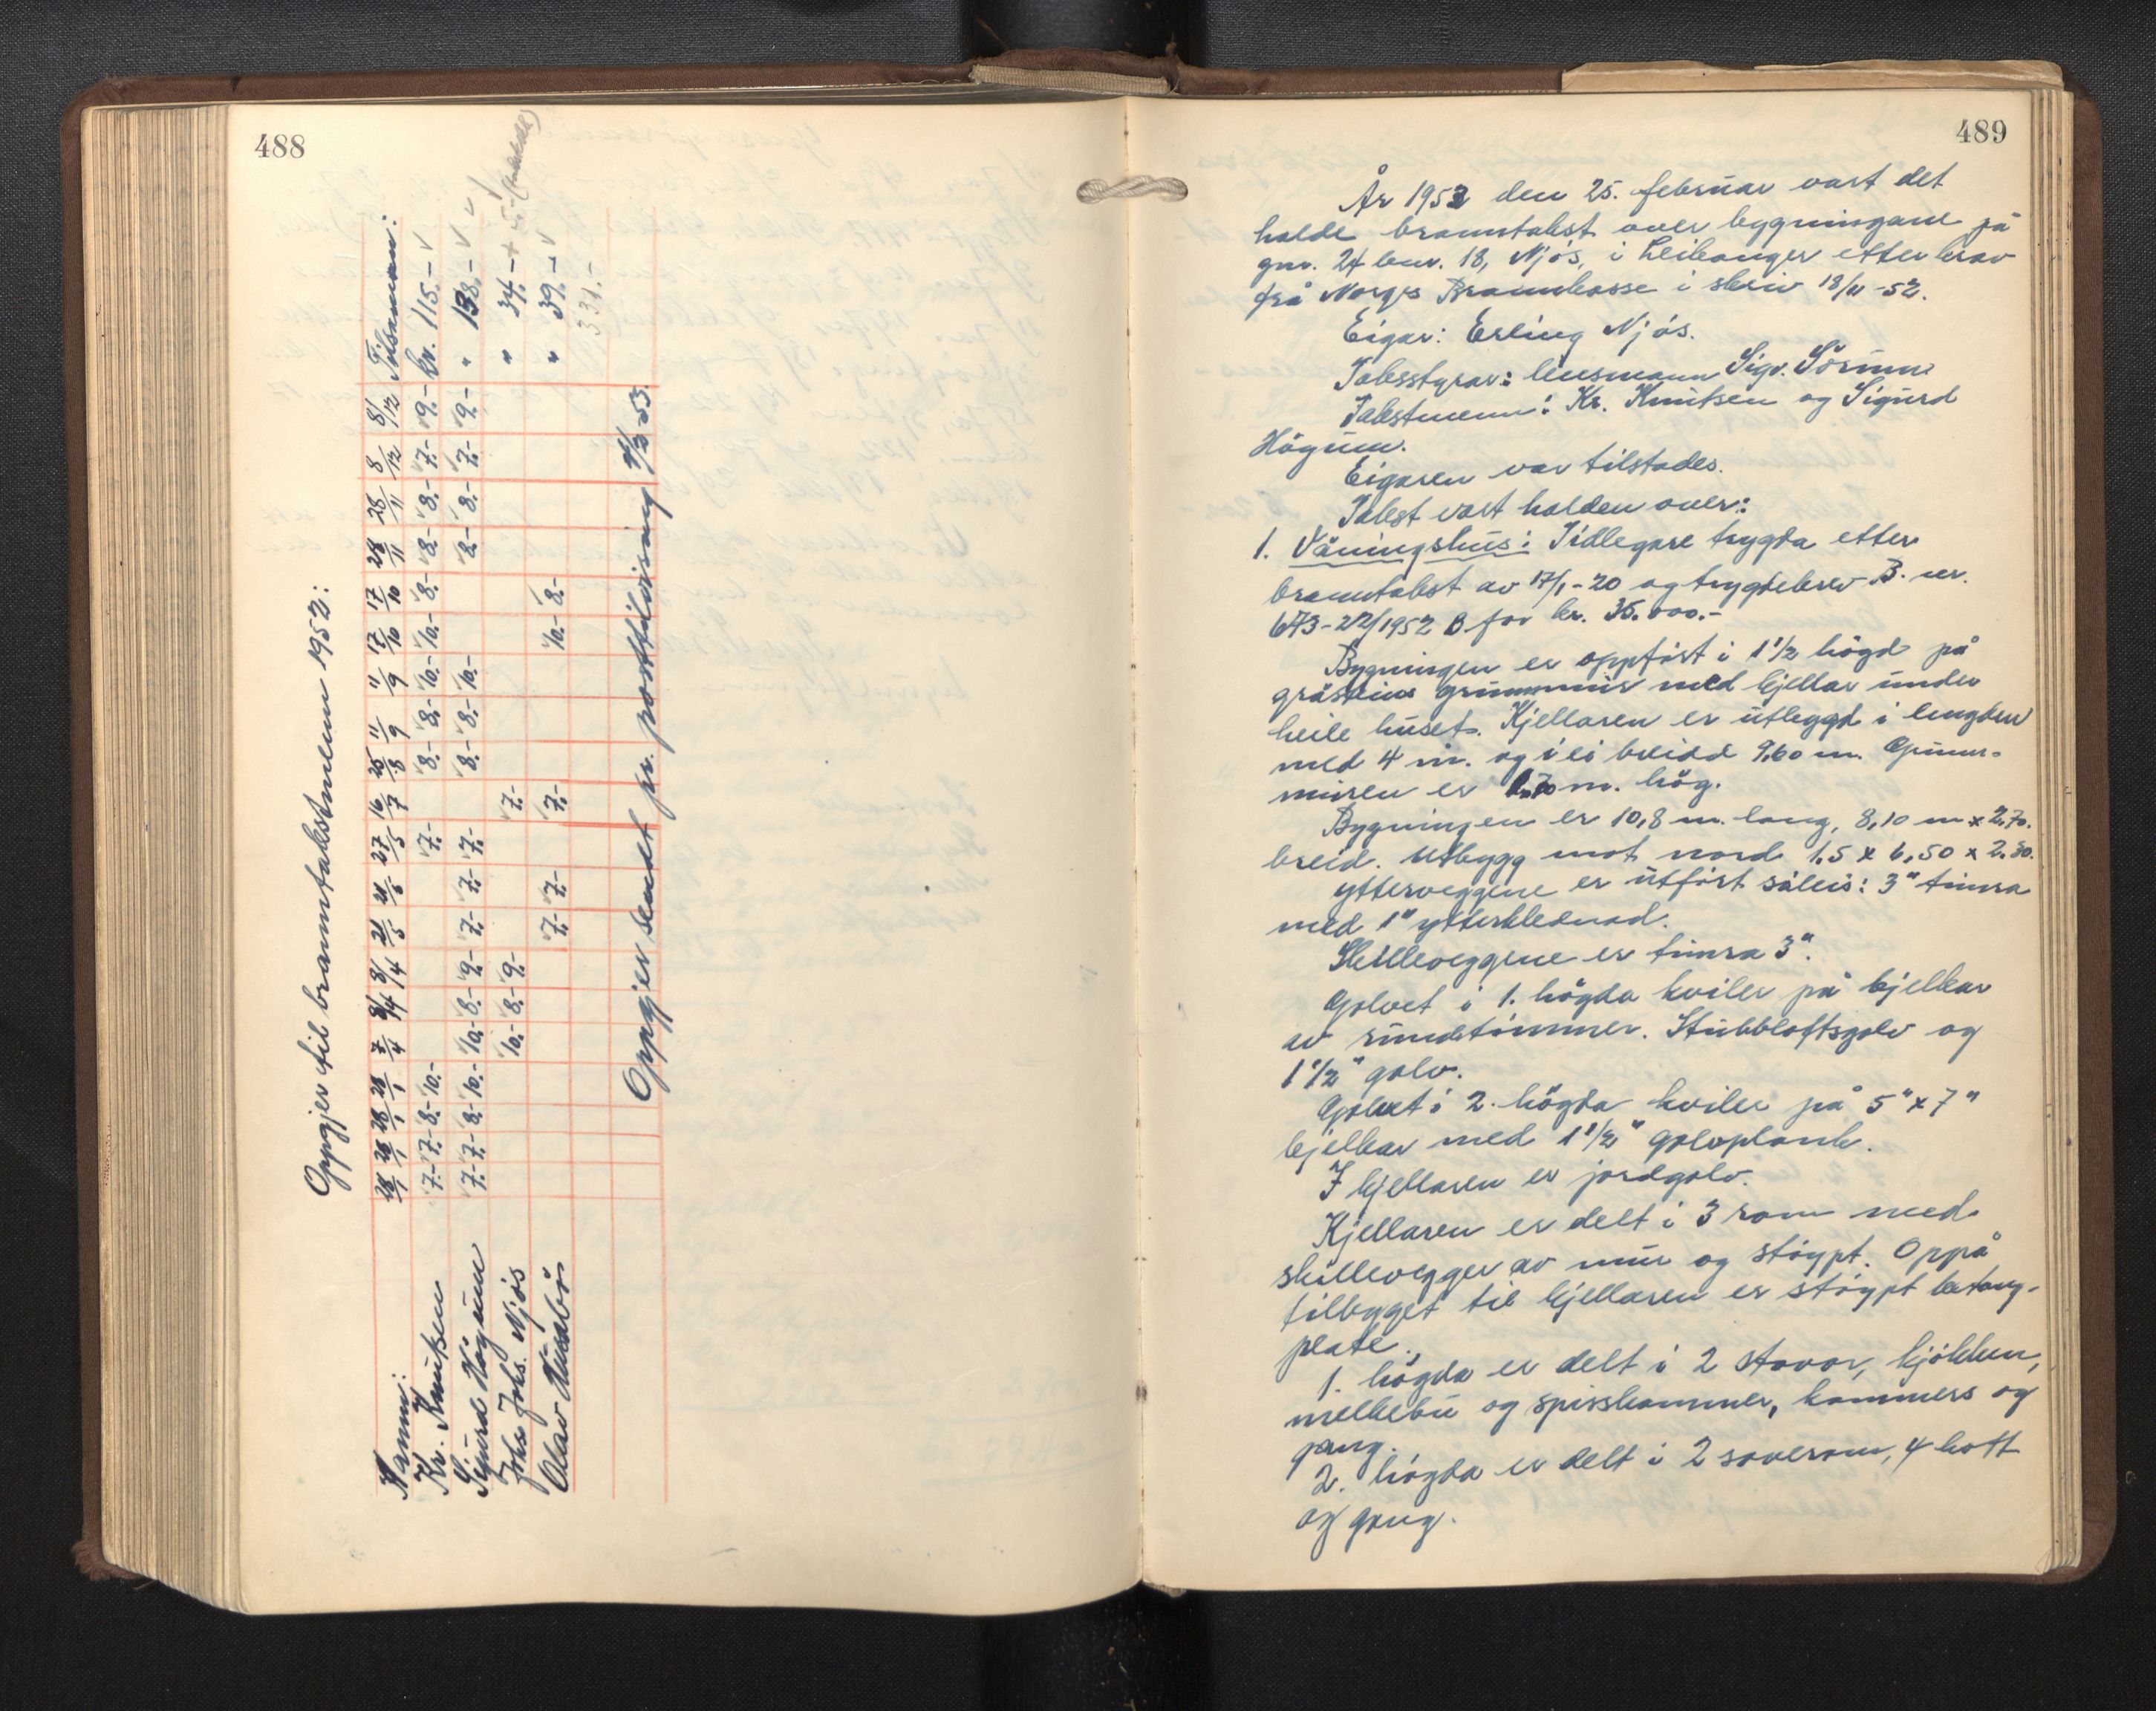 488
Oppgjer til branntakstmenn 1952:
Namn: 28/1 28/1 28/1 28/1 7/4 8/4 8/4 21/5 21/5 27/5 16/7 25/8 11/9 11/9 17/10 17/10 28/11 28/11 8/12 8/12 Tilsaman:
Kr. Knutsen 7.- 7.- 8.- 10.- 7.- 8.- 8.- 10.- 10.- 8.- 8.- 8.- 7.- 9.- kr. 115.- v
Sigurd Högum 7.- 7.- 8.- 10.- 10.- 8.- 9.- 7.- 7.- 7.- 8.- 8.- 10.- 8.- 8.- 7.- 9.- " 138.- v v
Johs Johs. Njøs 10.- 8.- 9.- 7.- " 34.-
Olav Husabø 7.- 7.- 7.- 10.- 8.- " 39.- v
331.-
Oppgjer sendt pr. posttilvising /2-53.
489
År 1953 den 25. februar vart det
halde branntakst over bygningane på
gnr. 24 bnr. 18, Njøs, i Leikanger etter krav
frå Norges Brannkasse i skriv 18/11-52.
Eigar: Erling Njøs.
Takststyrar: lensmann Sigv. Sörum
Takstmenn: Kr. Knutsen og Sigurd
Högum.
Eigaren var tilstades.
Takst vart halden over:
1. Våningshus: Tidlegare trygda etter
branntakst av 17/1-20 og trygdebrev B. nr.
673-22/1952 B for kr. 35.000.-
Bygningen er oppført i 1 1/2 högd på
gråsteins grunnmur med kjellar under
heile huset. Kjellaren er utbyggd i lengden
med 4 m. og i ei breidd 9,60 m. Grunn-
muren er 1.70 m. høg.
Bygningen er 10,8 m. lang, 8,10 m x 2,70.
breid. Utbygg mot nord 1,5 x 6,50 x 2.30.
Ytterveggene er utført såleis: 3" timra
med 1" ytterklednad.
Skilleveggene er timra 3".
Golvet i 1. högda kviler på bjelkar
av rundtömmer. Stubbloftsgolv og
1 1/2" golv.
Golvet i 2. högda kviler på 5" x 7"
bjelkar med 1 1/2" golvplank.
I kjellaren er jordgolv.
Kjellaren er delt i 3 rom med
skillevegger av mur og støypt. Oppå
tilbygget til kjellaren er støypt betong-
plate.
1. högda er delt i 2 stovor, kjøkken,
melkebu og spisskammer, kammers og
gang.
2. högda er delt i 2 soverom, 4 kott
og gang.